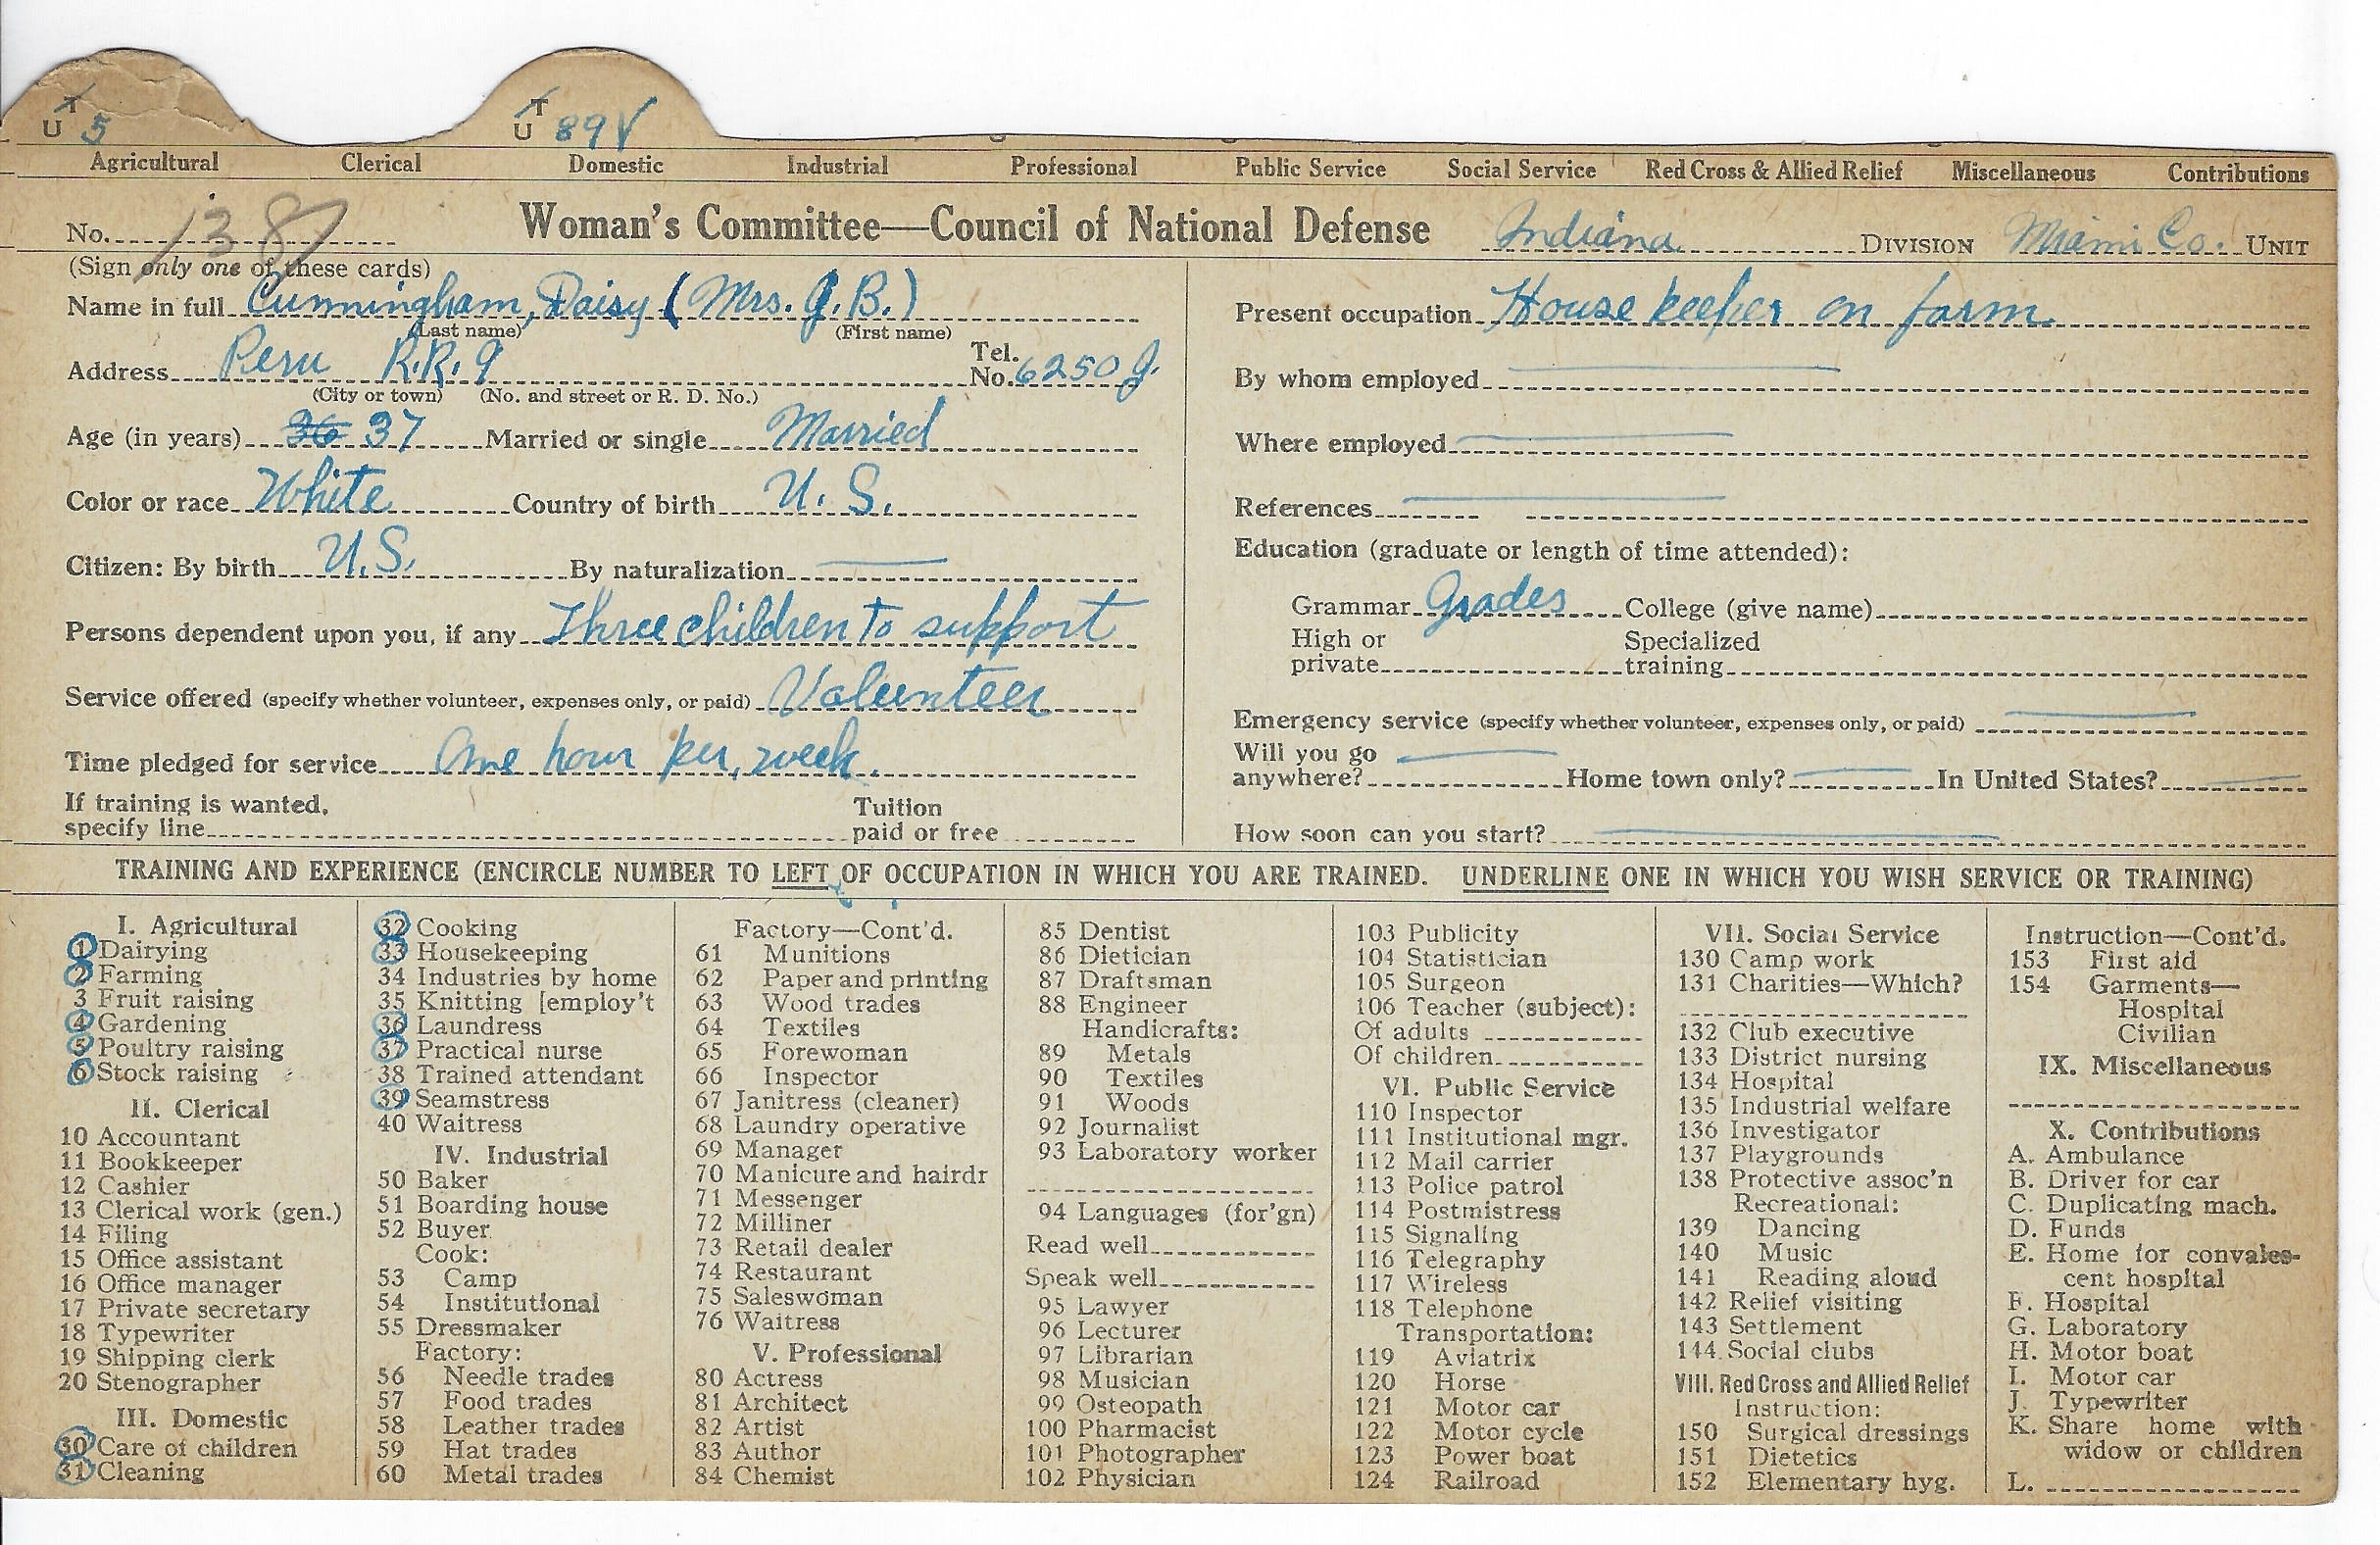 T T
U 5 U 89 V
Agricultural Clerical Domestic Industrial Professional Public Service Social Service Red Cross & Allied Relief Miscellaneous Contributions
No. 1387 Woman's Committee—Council of National Defense Indiana DIVISION Miami Co. UNIT
(Sign only one of these cards)
Name in full Cunningham, Daisy (Mrs. J. B.)
(Last name) (First name)
Address Peru R.R. 9 Tel. No. 6250 J.
(City or town) (No. and street or R. D. No.)
Age (in years) 36 37 Married or single Married
Color or race White Country of birth U. S.
Citizen: By birth U.S. By naturalization
Persons dependent upon you, if any Three children to support
Service offered (specify whether volunteer, expenses only, or paid) Volunteer
Time pledged for service One hour per, week.
If training is wanted, Tuition
specify line paid or free
Present occupation House keeper on farm
By whom employed
Where employed
References
Education (graduate or length of time attended):
Grammar Grades College (give name)
High or Specialized
private training
Emergency service (specify whether volunteer, expenses only, or paid)
Will you go
anywhere? Home town only? In United States?
How soon can you start?
TRAINING AND EXPERIENCE (ENCIRCLE NUMBER TO LEFT OF OCCUPATION IN WHICH YOU ARE TRAINED. UNDERLINE ONE IN WHICH YOU WISH SERVICE OR TRAINING)
I. Agricultural
1 Dairying
2 Farming
3 Fruit raising
4 Gardening
5 Poultry raising
6 Stock raising
II. Clerical
10 Accountant
11 Bookkeeper
12 Cashier
13 Clerical work (gen.)
14 Filing
15 Office assistant
16 Office manager
17 Private secretary
18 Typewriter
19 Shipping clerk
20 Stenographer
III. Domestic
30 Care of children
31 Cleaning
32 Cooking
33 Housekeeping
34 Industries by home
35 Knitting [employ't
36 Laundress
37 Practical nurse
38 Trained attendant
39 Seamstress
40 Waitress
IV. Industrial
50 Baker
51 Boarding house
52 Buyer
Cook:
53 Camp
54 Institutional
55 Dressmaker
Factory:
56 Needle trades
57 Food trades
58 Leather trades
59 Hat trades
60 Metal trades
Factory—Cont'd.
61 Munitions
62 Paper and printing
63 Wood trades
64 Textiles
65 Forewoman
66 Inspector
67 Janitress (cleaner)
68 Laundry operative
69 Manager
70 Manicure and hairdr
71 Messenger
72 Milliner
73 Retail dealer
74 Restaurant
75 Saleswoman
76 Waitress
V. Professional
80 Actress
81 Architect
82 Artist
83 Author
84 Chemist
85 Dentist
86 Dietician
87 Draftsman
88 Engineer
Handicrafts:
89 Metals
90 Textiles
91 Woods
92 Journalist
93 Laboratory worker
94 Languages (for'gn)
Read well
Speak well
95 Lawyer
96 Lecturer
97 Librarian
98 Musician
99 Osteopath
100 Pharmacist
101 Photographer
102 Physician
103 Publicity
104 Statistician
105 Surgeon
106 Teacher (subject):
Of adults
Of children
VI. Public Service
110 Inspector
111 Institutional mgr.
112 Mail carrier
113 Police patrol
114 Postmistress
115 Signaling
116 Telegraphy
117 Wireless
118 Telephone
Transportation:
119 Aviatrix
120 Horse
121 Motor car
122 Motor cycle
123 Power boat
124 Railroad
VII. Social Service
130 Camp work
131 Charities—Which?
132 Club executive
133 District nursing
134 Hospital
135 Industrial welfare
136 Investigator
137 Playgrounds
138 Protective assoc'n
Recreational:
139 Dancing
140 Music
141 Reading aloud
142 Relief visiting
143 Settlement
144 Social clubs
VIII. Red Cross and Allied Relief
Instruction:
150 Surgical dressings
151 Dietetics
152 Elementary hyg.
Instruction—Cont'd.
153 First aid
154 Garments—
Hospital
Civilian
IX. Miscellaneous
X. Contributions
A. Ambulance
B. Driver for car
C. Duplicating mach.
D. Funds
E. Home for convales-
cent hospital
F. Hospital
G. Laboratory
H. Motor boat
I. Motor car
J. Typewriter
K. Share home with
widow or children
L.